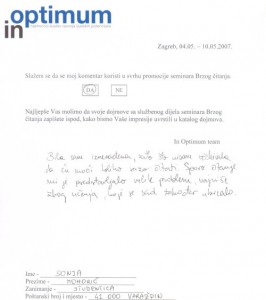 in optimum
Zagreb, 04.05. – 10.05.2007.
Slažem se da se moj komentar koristi u svrhu promocije seminara Brzog čitanja.
DA NE
Najljepše Vas molimo da svoje dojmove sa službenog dijela seminara Brzog
čitanja zapišete ispod, kako bismo Vaše impresije uvrstili u katalog dojmova.
In Optimum team
Bila sam iznenađena, zato što nisam očekivala
da ću moći toliko brzo čitati. Sporo čitanje
mi je predstavljalo velike probleme, najviše
zbog učenja, koji se sad
Ime - SONJA
Prezime -
Zanimanje - STUDENTICA
Poštanski broj i mjesto - 42 000 VARAŽDIN